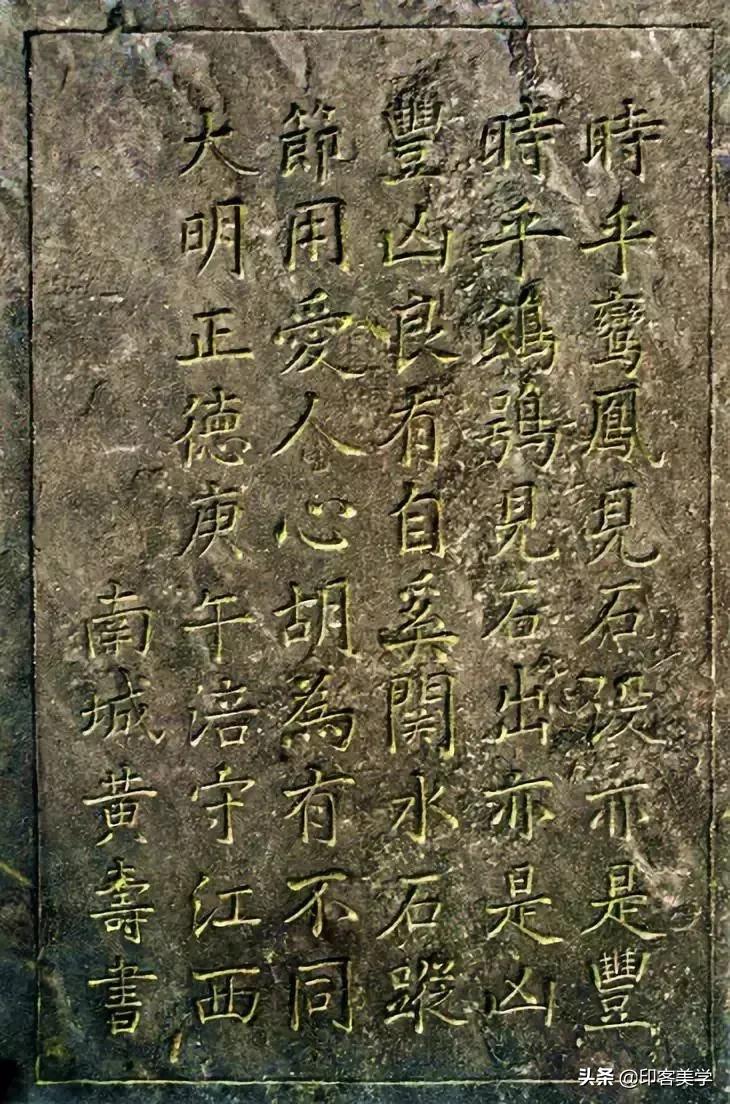 時乎鸞鳳見石没亦是豐
時乎鴟鴞見石出亦是凶
豐凶良有自奚関水石蹤
節用愛人心胡為有不同
大明正德庚午涪守江西
南城黄壽書
头条 @印客美学